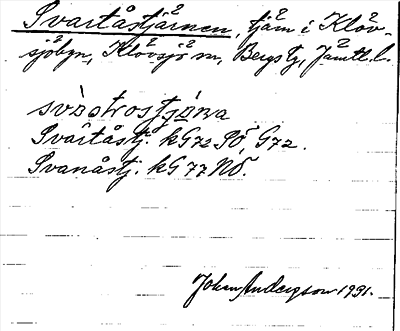 Svartåstjärnen, tjärn i Klöv-
sjöbyn, Klövsjö sn, Bergs tg, Jämtl. l.
Svartåstj. kG72 SÖ, G72.
Svanåstj. kG77NÖ.
Johan Anderson 1931.